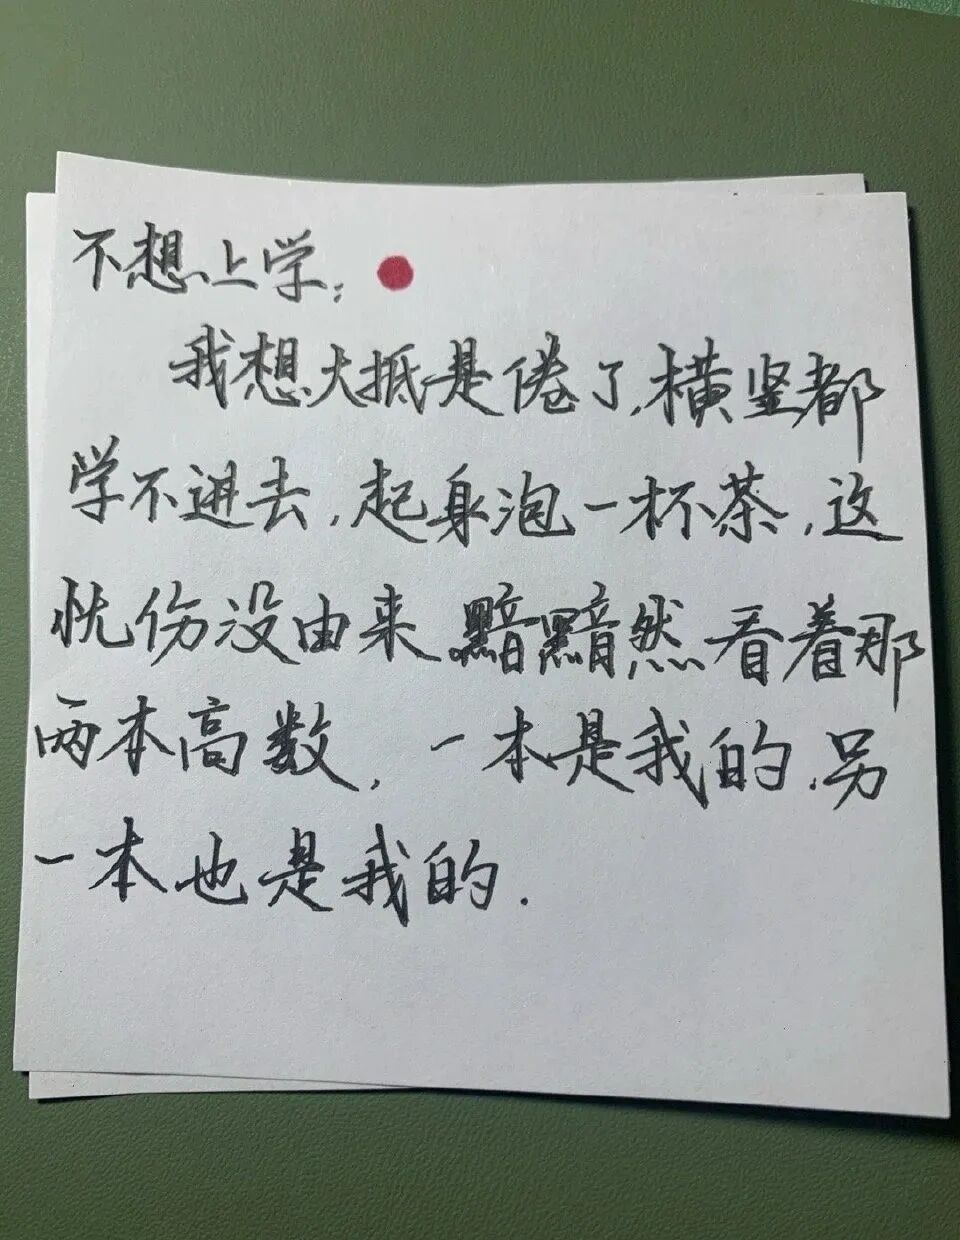 不想上学:
我想大抵是倦了,横竖都
学不进去,起身泡一杯茶,这
忧伤没由来黯黯然看着那
两本高数,一本是我的.另
一本也是我的.